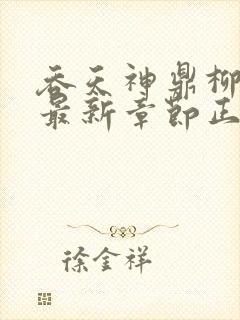 吞天神鼎柳
最新章节正
徐金祥